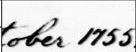 tober 1755